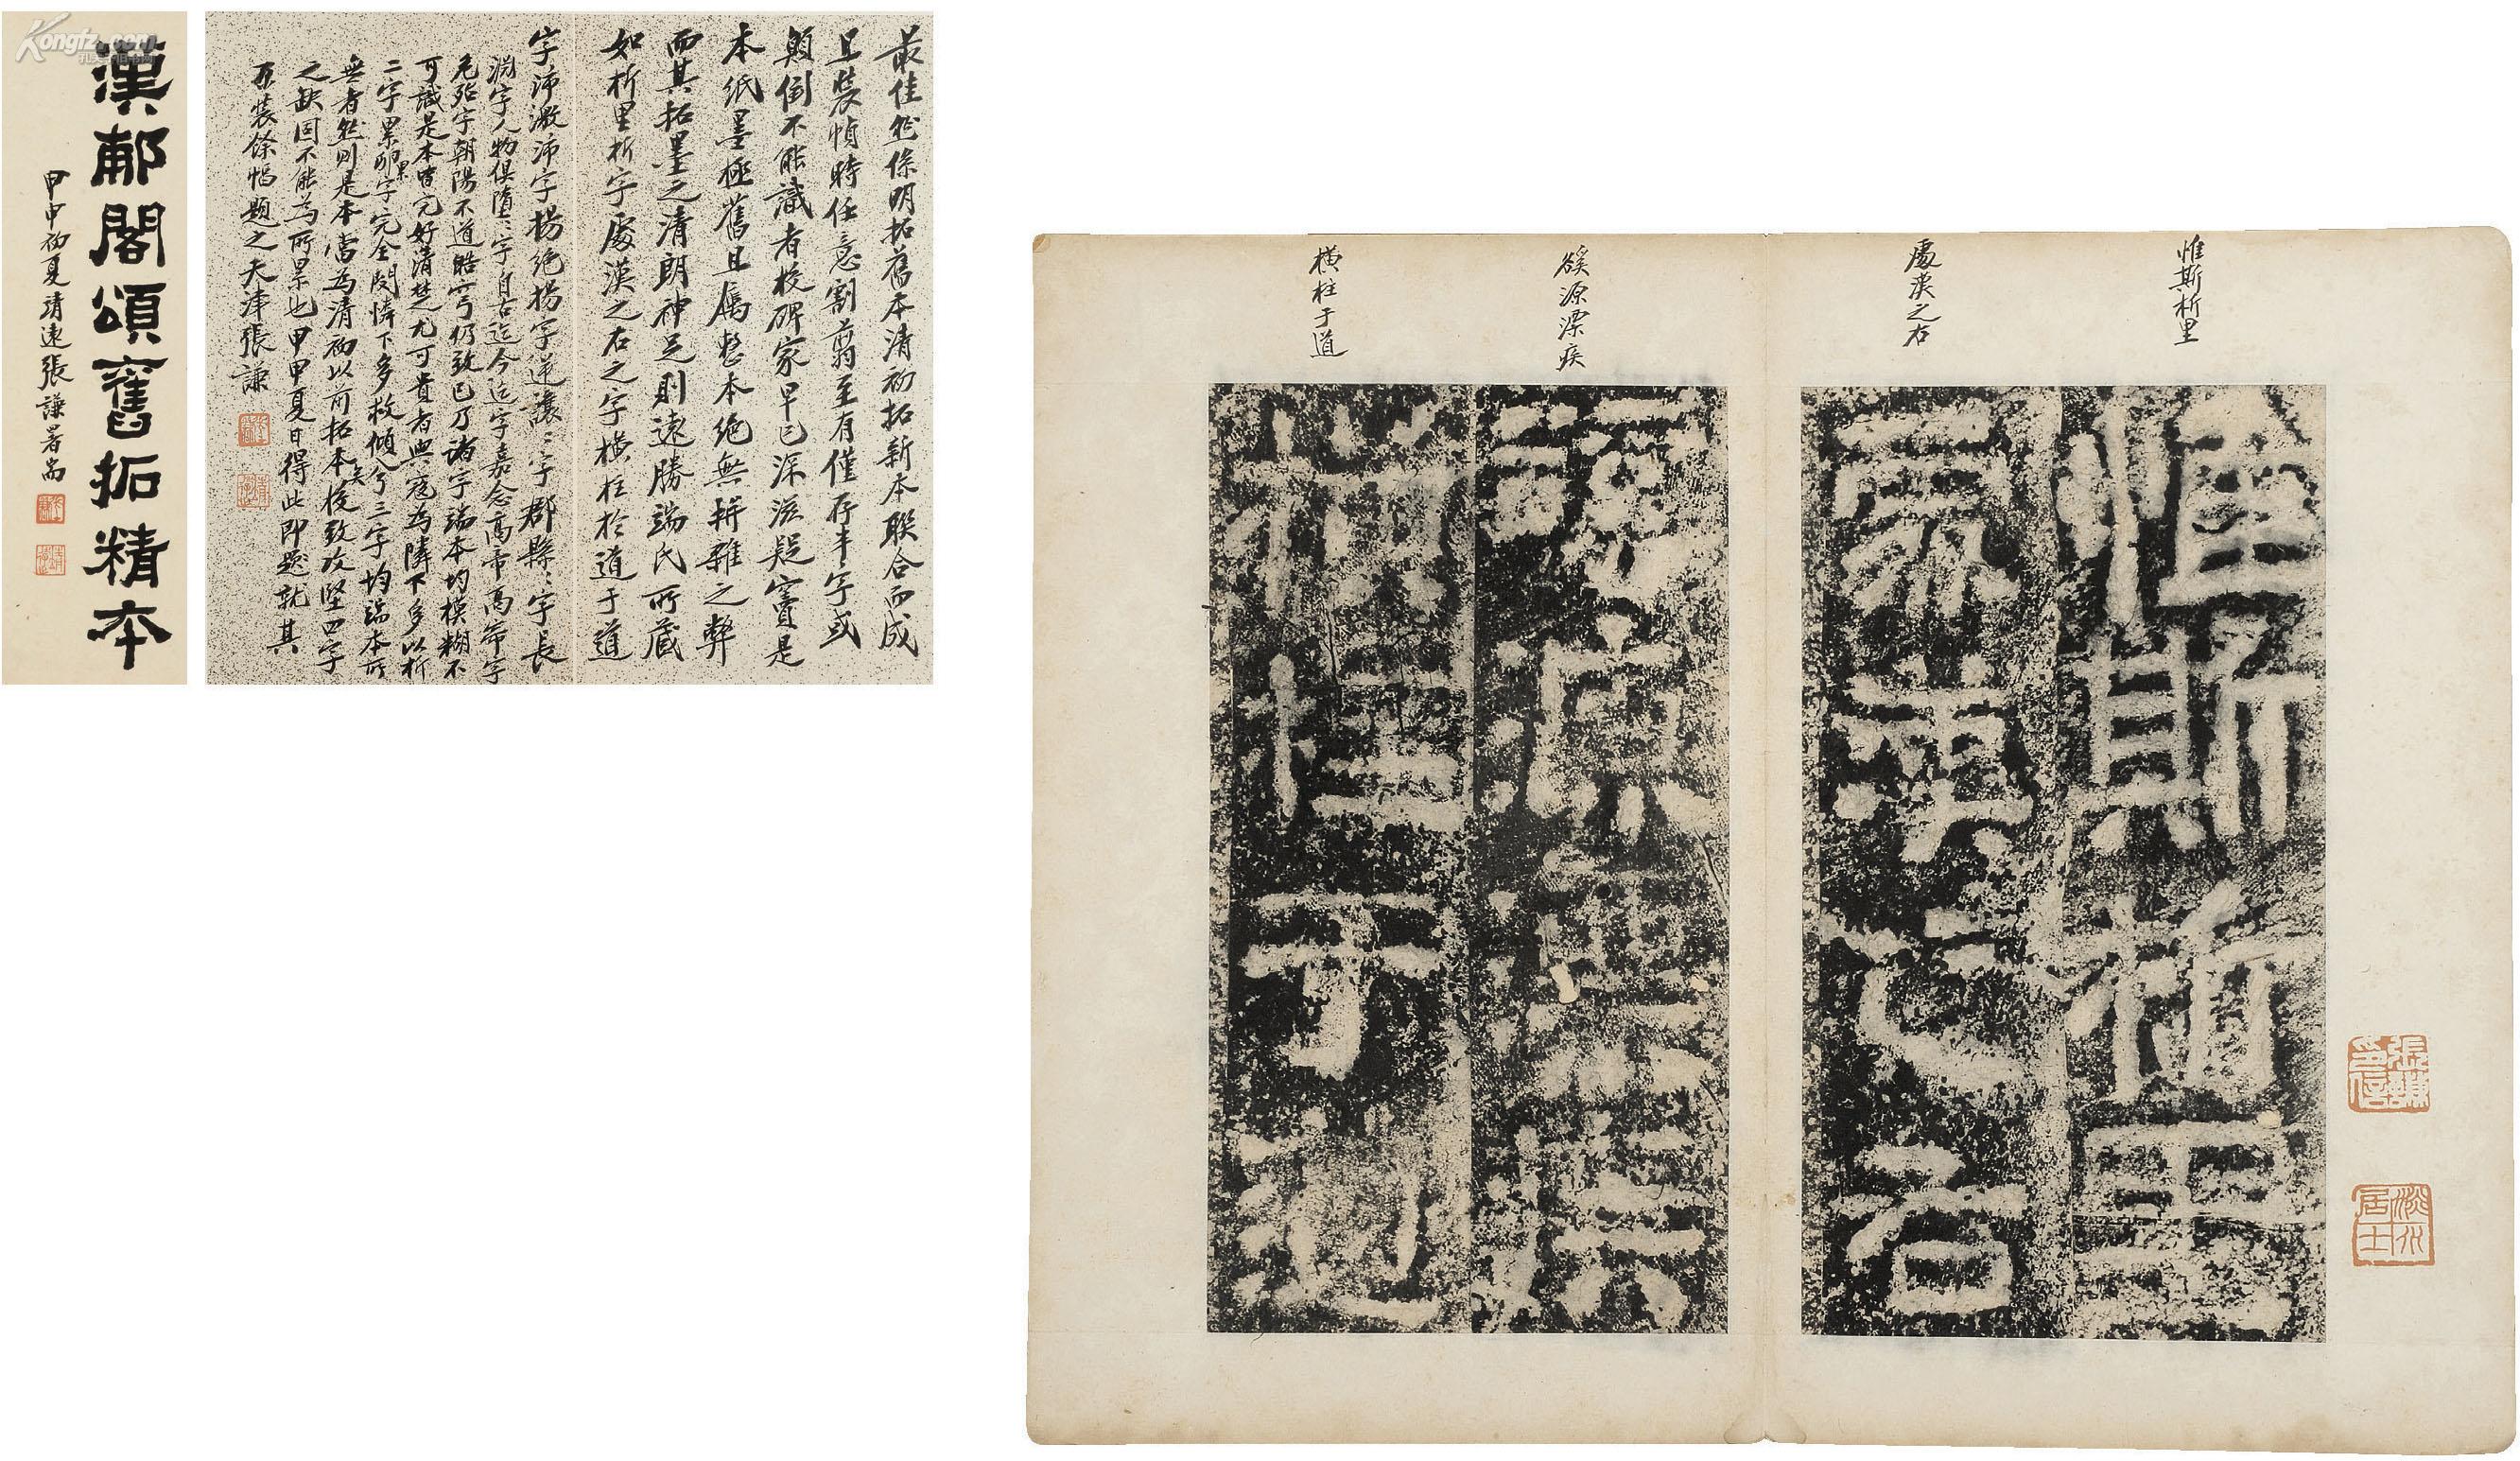 漢郙閣頌舊拓精本
甲申初夏靖遠張謙署耑
最佳然係明拓舊本清初拓新本聯合而成
且裝幀時任意割翦至有僅存半字或
顛倒不能識者校碑家早已深滋疑竇是
本紙墨極舊且屬整本絕無拼雜之弊
而其拓墨之清朗神足則遠勝端氏所藏
如析里析字處漢之右之字橫柱於道于道
字沛激沛字揚絕揚字逆讓〻字郡縣〻字長
淵字人物俱墮〻字自古迄今迄字嘉念高帝高帝字
危殆字朝陽不道仍致已乃諸字端本均模糊不
可識是本皆完好清楚尤可貴者與寇為隣下多以析
二字累卵字完全閔憐下多救傾兮三字均端本所
無者然則是本當為清初以前拓本後致攻堅四字
之缺固不能為所累也甲申夏日得此即題就其
原裝餘幅題之天津張謙
惟斯析里
處漢之右
谿源漂疾
橫柱于道
惟斯析里
處漢之右
谿源漂疾
橫柱于道
張謙印信
居士
Kongfz.com